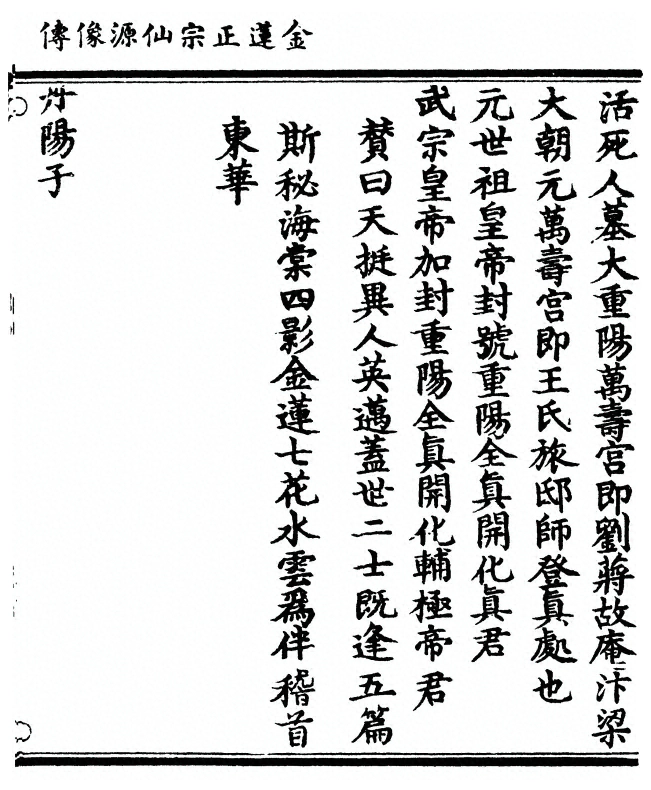 金蓮正宗仙源像傳
活死人墓大重陽萬壽宮即劉蔣故庵汴梁
大朝元萬壽宮即王氏旅邸師登真處也
元世祖皇帝封號重陽全真開化真君
武宗皇帝加封重陽全真開化輔極帝君
贊曰天挺異人英邁蓋世二士既逢五篇
斯秘海棠四影金蓮七花水雲為伴稽首
東華
丹陽子